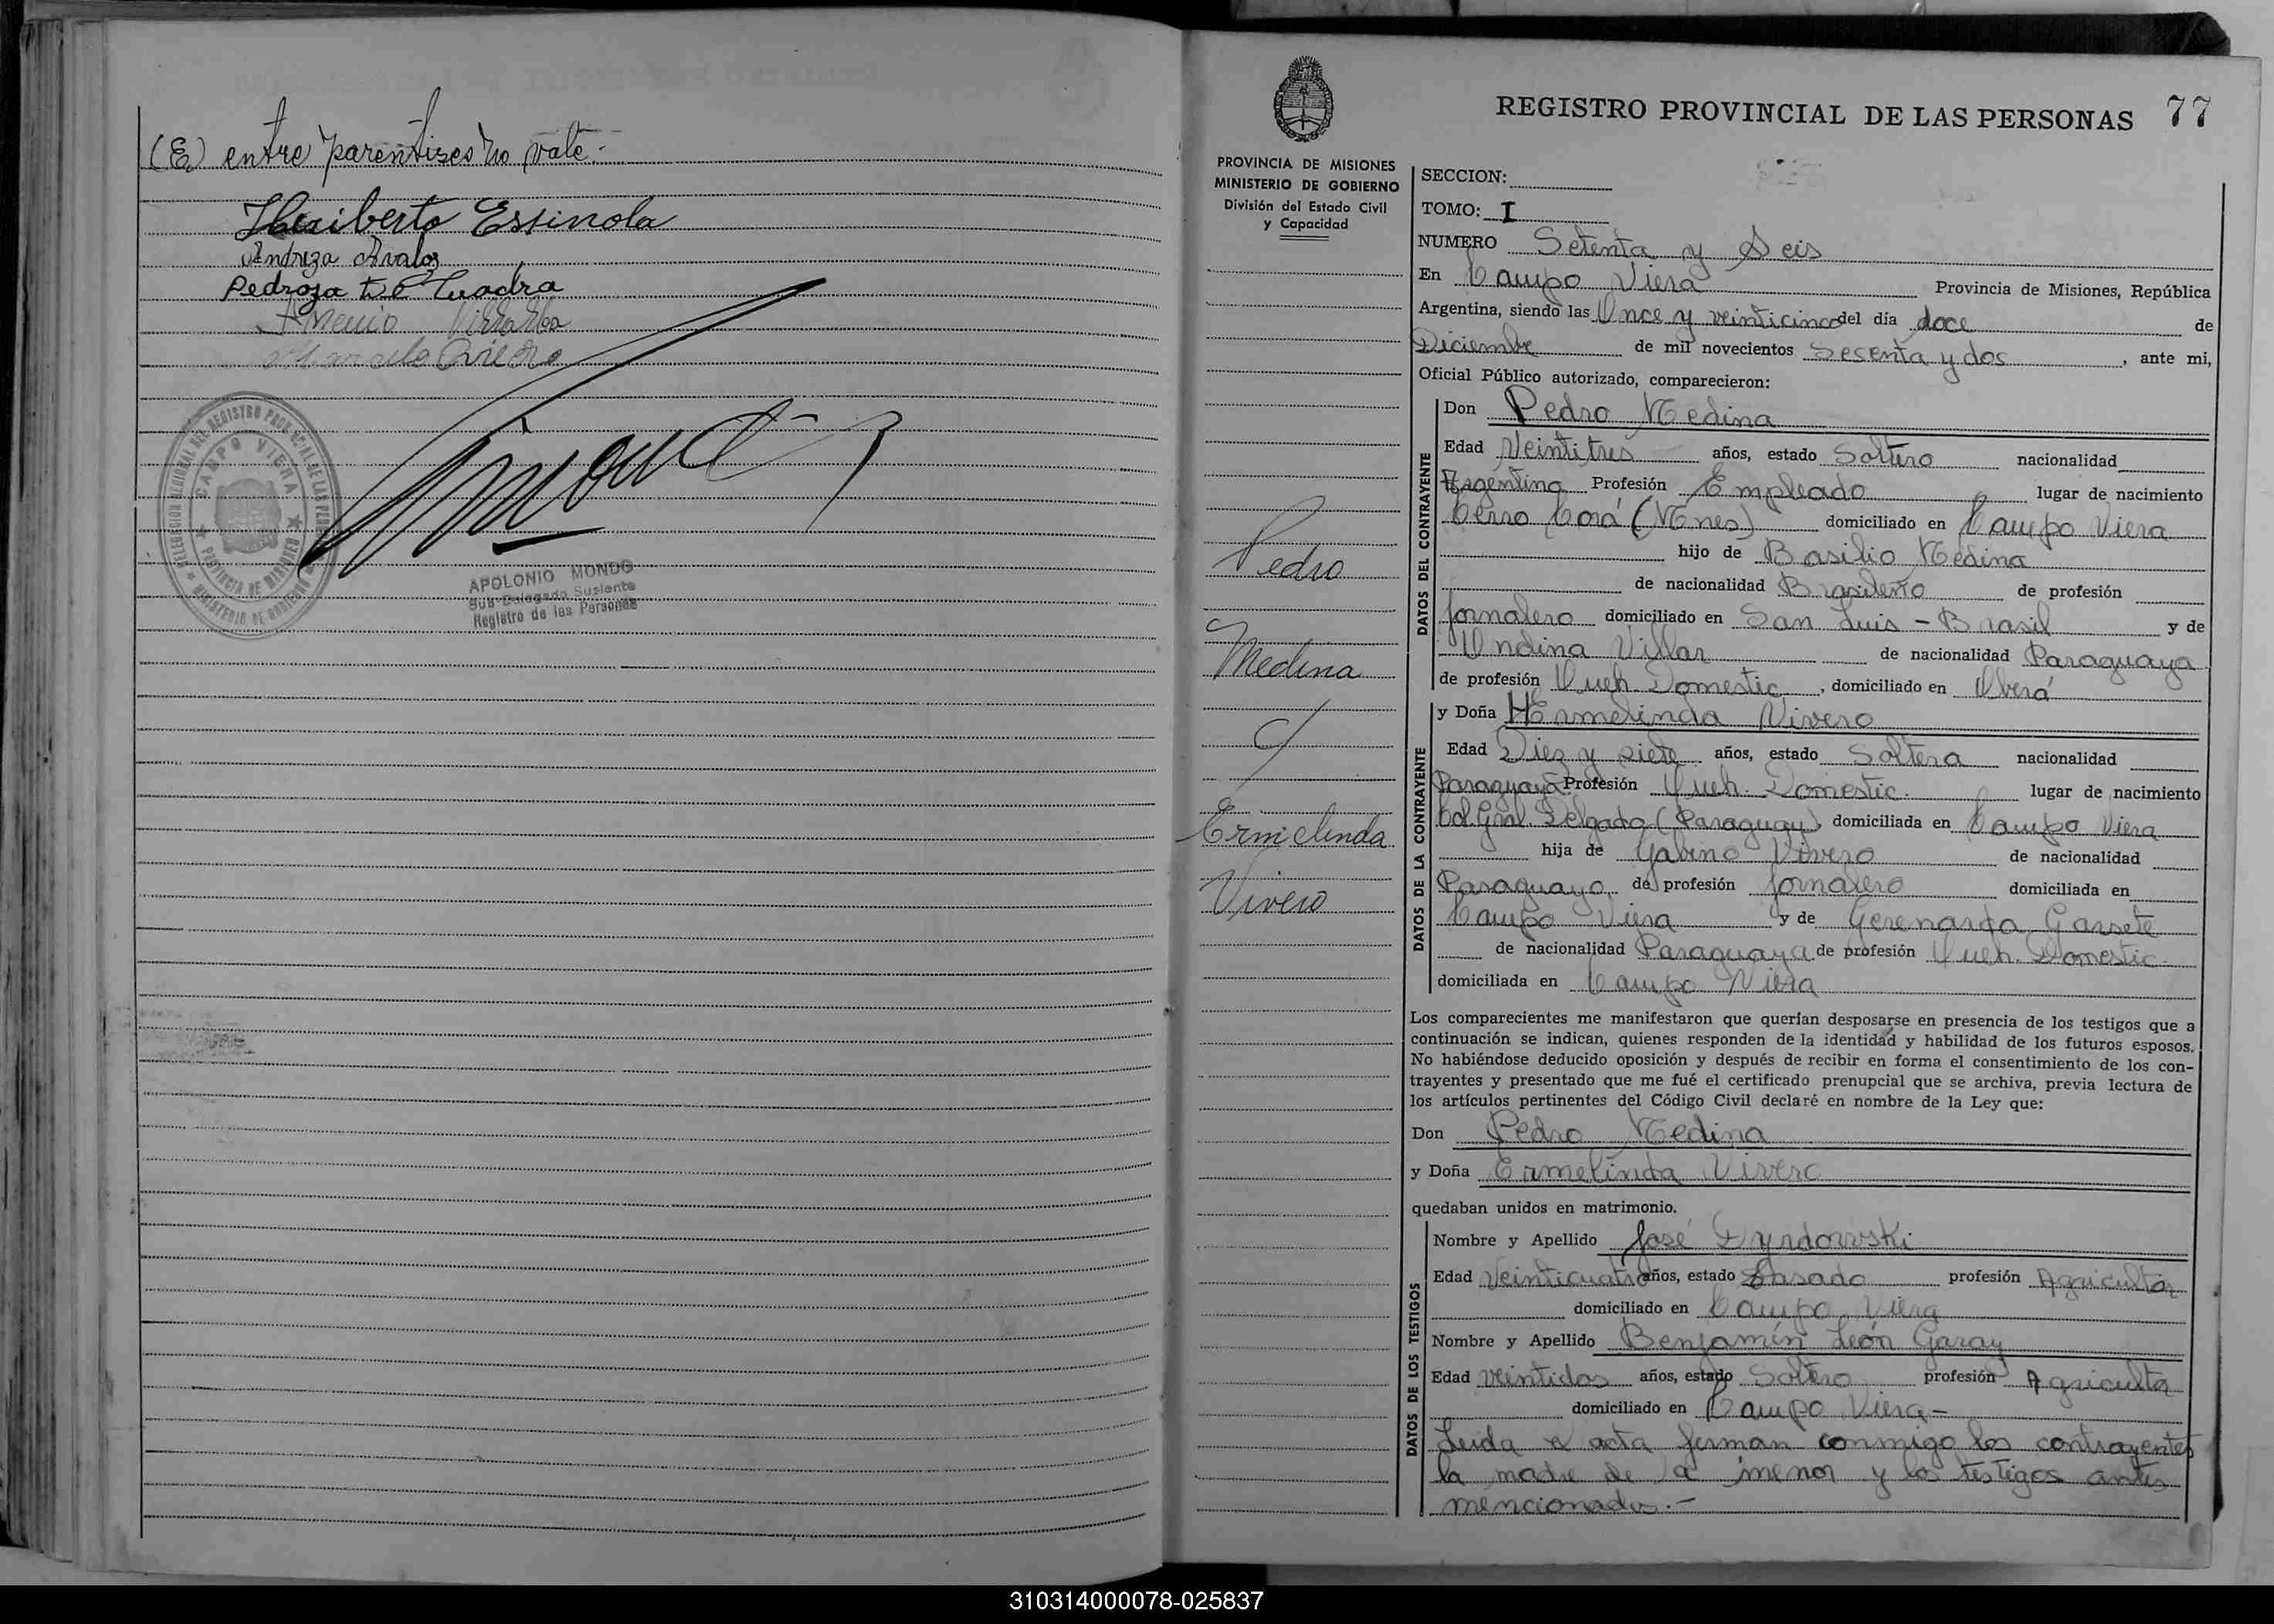 (E) entre parentises no vale.-
Heriberto Essinola
Andreza Avalos
Pedroza de Cuadra
Marcelo Oviedo
CAMPO VIERA
PROVINCIA DE MISIONES
MINISTERIO DE GOBIERNO
APOLONIO MONDO
Sub-Delegado Suplente
Registro de las Personas
REGISTRO PROVINCIAL DE LAS PERSONAS 77
PROVINCIA DE MISIONES
MINISTERIO DE GOBIERNO
División del Estado Civil
y Capacidad
Pedro
Medina
c/
Ermelinda
Vivero
SECCION:
TOMO: I
NUMERO Setenta y Seis
En Campo Viera Provincia de Misiones, República
Argentina, siendo las Once y veinticinco del día doce de
Diciembre de mil novecientos Sesenta y dos, ante mi,
Oficial Público autorizado, comparecieron:
DATOS DEL CONTRAYENTE
Don Pedro Medina
Edad Veintitres años, estado Soltero nacionalidad
Argentino Profesión Empleado lugar de nacimiento
Cerro Corá (Mnes) domiciliado en Campo Viera
hijo de Basilio Medina
de nacionalidad Brasileño de profesión
Jornalero domiciliado en San Luis - Brasil y de
Undina Villar de nacionalidad Paraguaya
de profesión Queh. Domestic, domiciliado en Oberá
DATOS DE LA CONTRAYENTE
y Doña Hermelinda Vivero
Edad Diez y siete años, estado Soltera nacionalidad
Paraguaya Profesión Queh. Domestic. lugar de nacimiento
Col. Gral. Delgado (Paraguay), domiciliada en Campo Viera
hija de Gabino Vivero de nacionalidad
Paraguayo de profesión Jornalero domiciliada en
Campo Viera y de Gerenarda Garsete
de nacionalidad Paraguaya de profesión Queh. Domestic.
domiciliada en Campo Viera
Los comparecientes me manifestaron que querían desposarse en presencia de los testigos que a
continuación se indican, quienes responden de la identidad y habilidad de los futuros esposos.
No habiéndose deducido oposición y después de recibir en forma el consentimiento de los con-
trayentes y presentado que me fué el certificado prenupcial que se archiva, previa lectura de
los artículos pertinentes del Código Civil declaré en nombre de la Ley que:
Don Pedro Medina
y Doña Ermelinda Vivero
quedaban unidos en matrimonio.
DATOS DE LOS TESTIGOS
Nombre y Apellido José Dyrdowski
Edad Veinticuatro años, estado Casado profesión Agricultor
domiciliado en Campo Viera
Nombre y Apellido Benjamín León Garay
Edad veintidos años, estado Soltero profesión Agriculto
domiciliado en Campo Viera -
Leida el acta firman conmigo los contrayentes
la madre de la menor y los testigos antes
mencionados.-
310314000078-025837